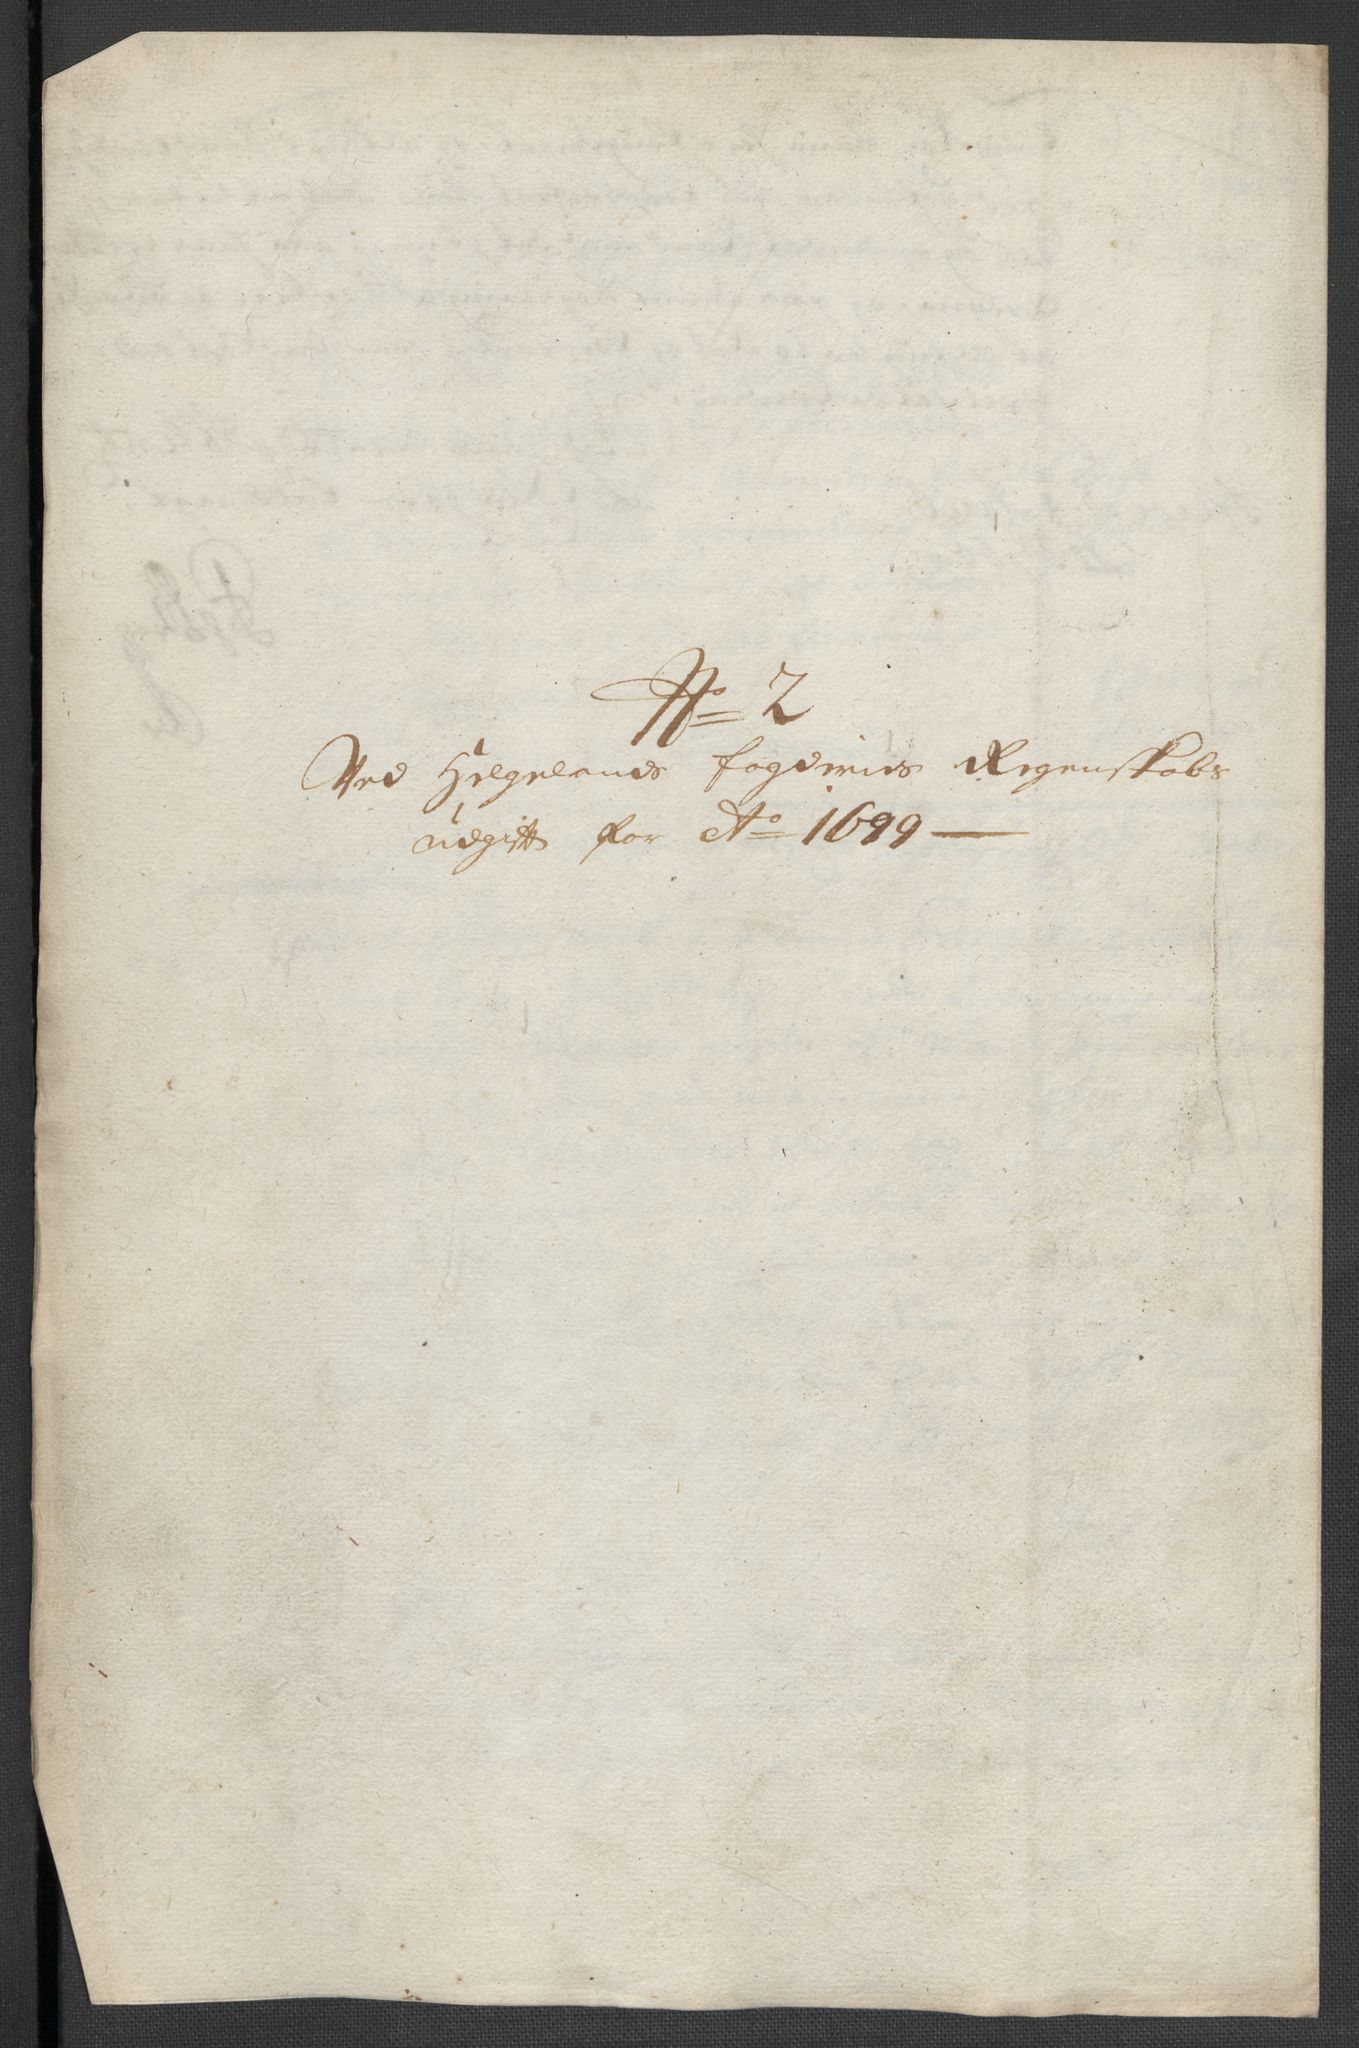 No 2
Ved Helgelands fogderies Regenskabs
udgift for Ao 1699